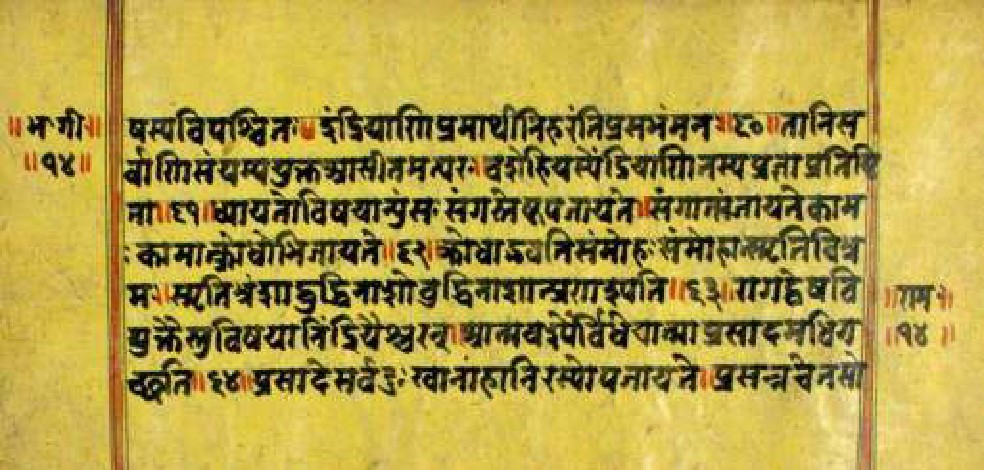 ॥भ॰गी॥
॥१४॥
षस्यविपश्चितः॥इंद्रियाणिप्रमाथीनिहरंतिप्रसभंमनः॥६०॥तानिस
र्वाणिसंयम्ययुक्तआसीतमत्परः॥वशेहियस्येंद्रियाणितस्यप्रज्ञाप्रतिष्ठि
ता॥६१॥ध्यायतोविषयान्पुंसःसंगस्तेषूपजायते॥संगात्संजायतेकाम
ःकामात्क्रोधोभिजायते॥६२॥क्रोधाद्भवतिसंमोहःसंमोहात्स्मृतिविभ्र
मः॥स्मृतिभ्रंशाद्बुद्धिनाशोबुद्धिनाशात्प्रणश्यति॥६३॥रागद्वेषवि
युक्तैस्तुविषयानिंद्रियैश्चरन्॥आत्मवश्यैर्विधेयात्माप्रसादमधिग
च्छति॥६४॥प्रसादेसर्वदुःखानांहानिरस्योपजायते॥प्रसन्नचेतसो
॥राम॥
॥१४॥